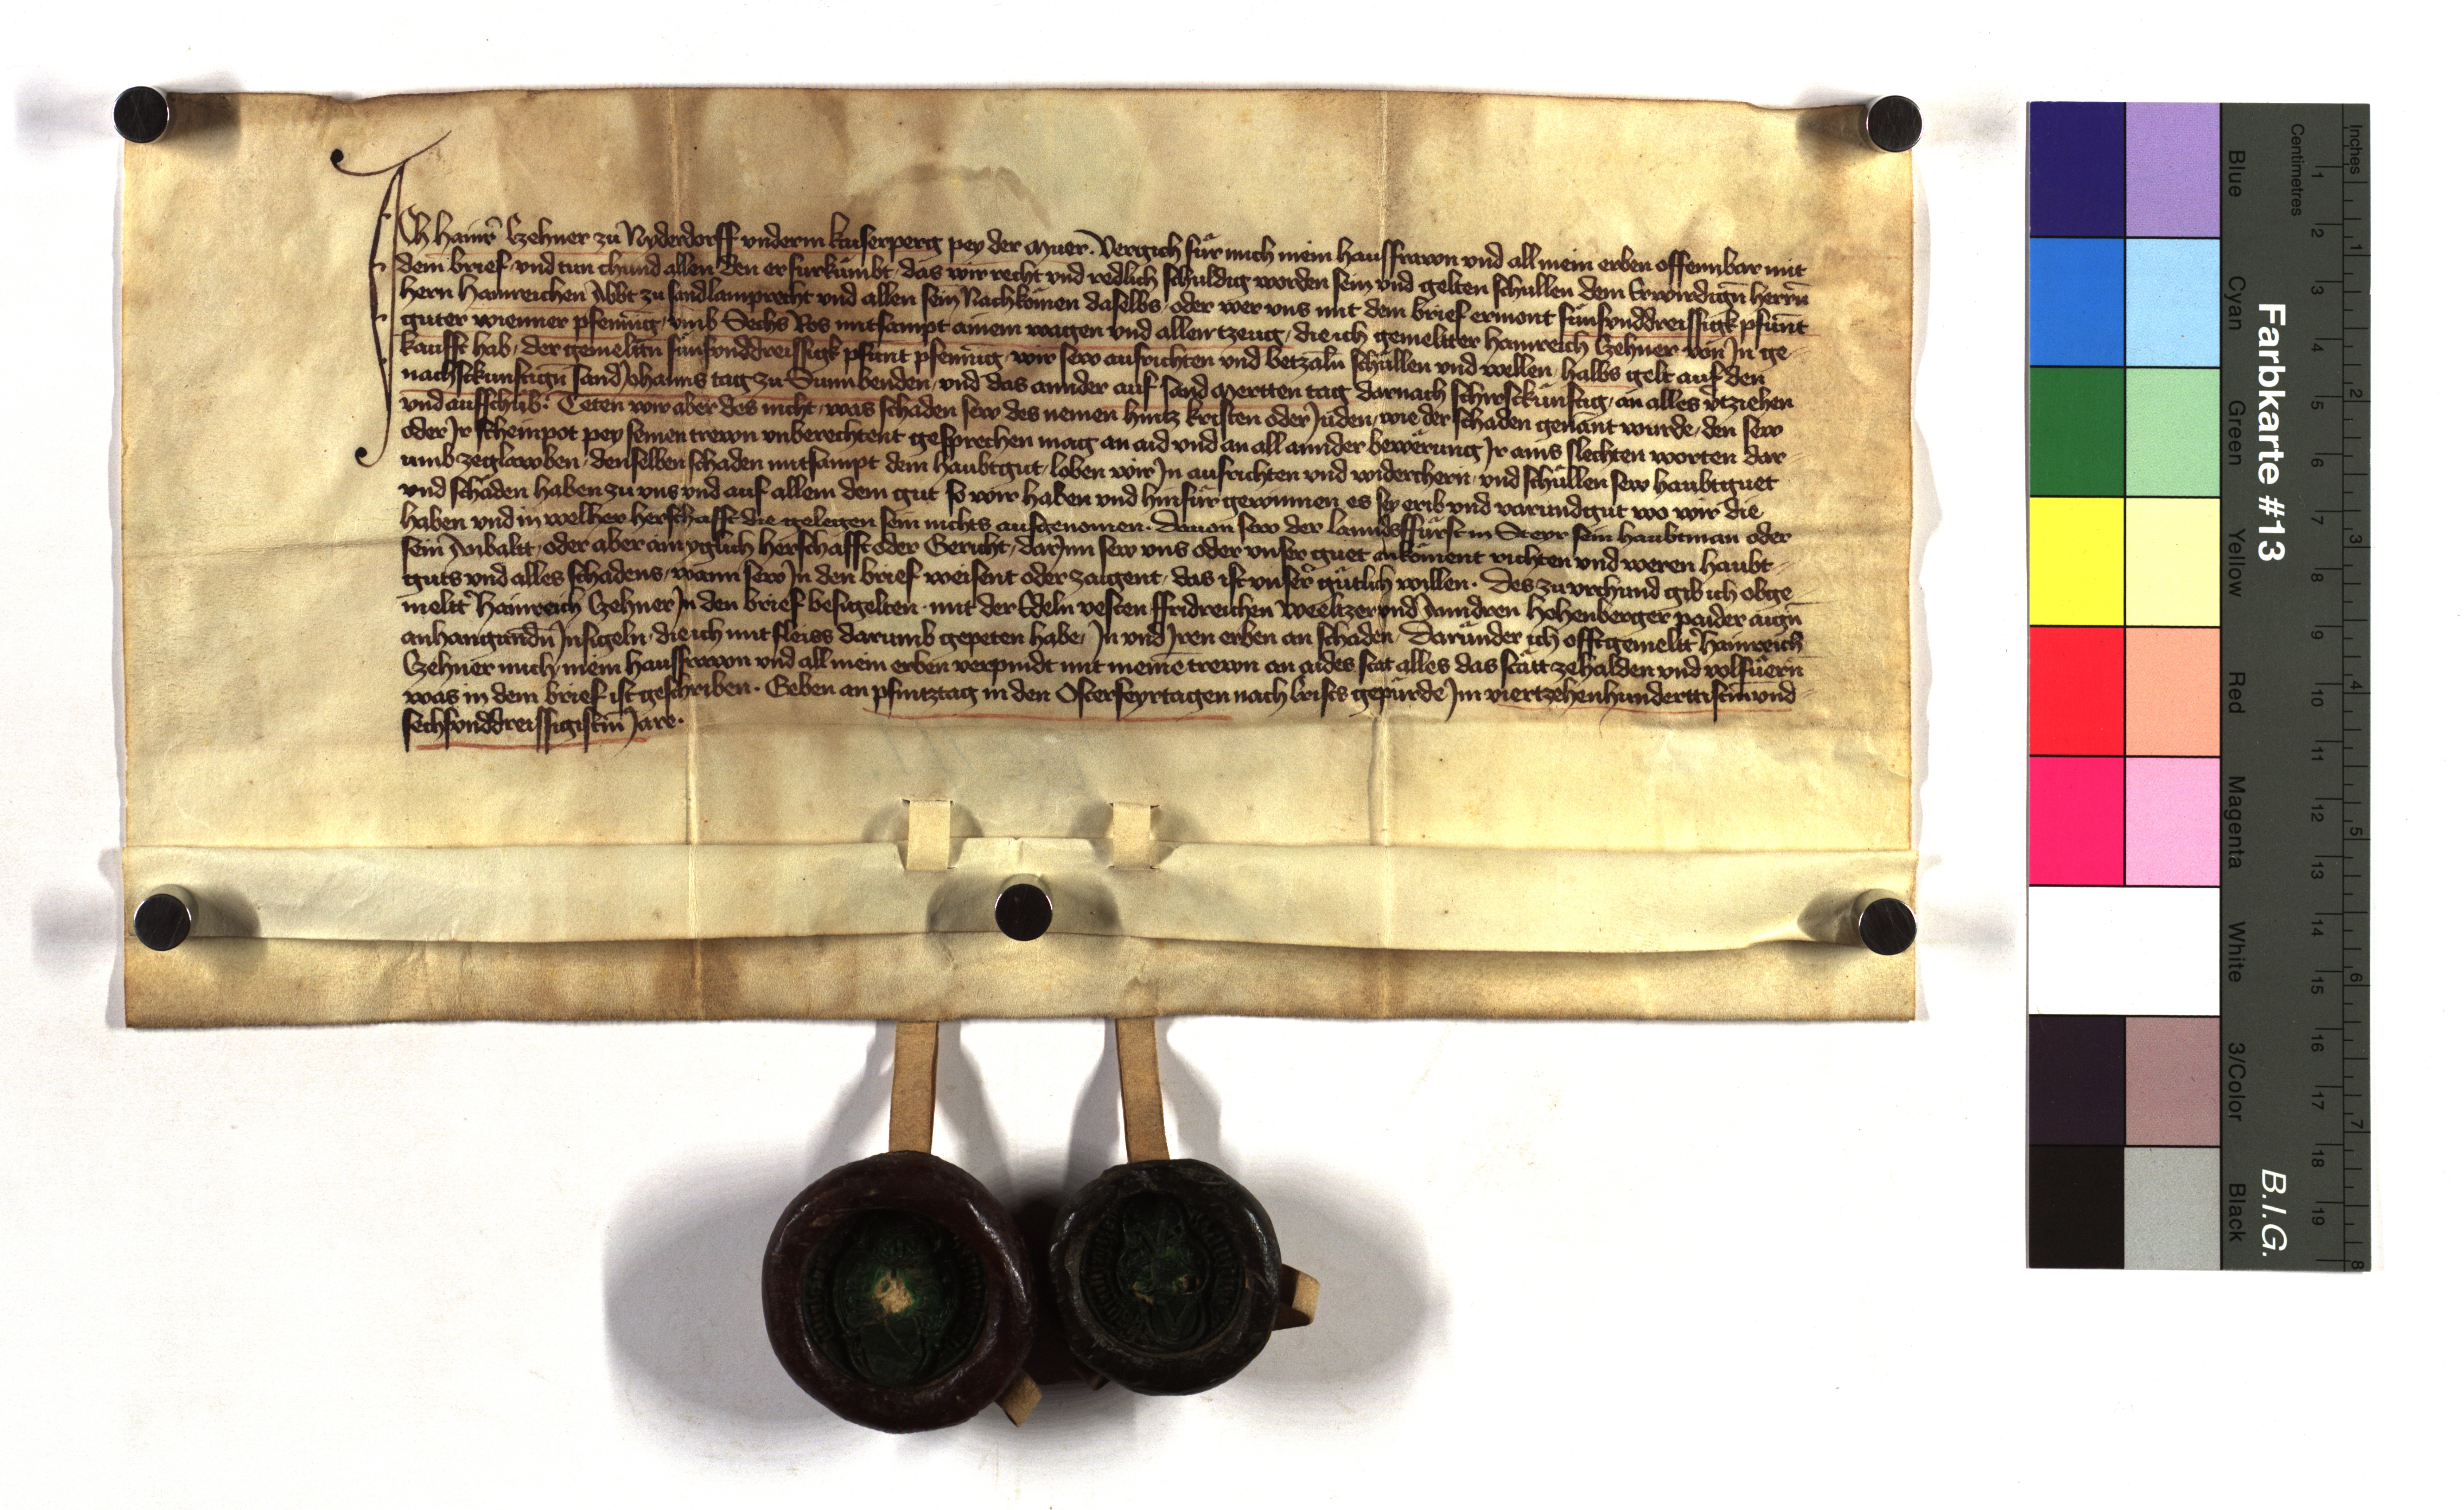 Ich Hainr̄ Czehner zu Nyderdorff vnderm kaiserperg pey der Muer. Vergich für mich mein hausfrawn vnd all mein erben offennbar mit
dem brief vnd tun chund allen den er fürkümbt, das wir recht vnd redlich schuldig worden sein vnd gelten schullen dem Erwirdign̄ herrn̄
hern Hainreichen Abbt zu sandlamprecht vnd allen sein Nachkömen daselbs, oder wer vns mit dem brief ermont fünfvnddreissigk pfünt
guter wienner pfennig, vmb Sechs Ros mitsampt ainem wagen vnd allem tzeug, die ich gemeltter Hainreich Czehner von Jn ge-
kaufft hab, der gemeltn̄ fünfvnddreissigk pfunt pfennig, wir sew ausrichten vnd betzaln̄ schüllen vnd wellen, halbs gelt auf den
nachstkunftign̄ sand Johanns tag zu Sunnbenden, vnd das annder auf sand Mertten tag darnach schirstkünftig, an alles v̄tziehen
vnd aufschub. Teten wir aber des nicht, was schaden sew des nemen hintz kristen oder Juden, wie der schaden genānt wurde, den sew
oder Jr scheinpot pey seinen trewn vnberechtent gesprechen mag an aid vnd an all annder bewärung Jr ains slechten worten dar-
umb zeglawben, denselben schaden mitsampt dem haubtgut, loben wir Jn ausrichten vnd widerchern̄, vnd schüllen sew haubtguet
vnd schäden haben zu vns vnd auf allem dem gut so wir haben vnd hinfür gewinnen, es sey erib vnd varundigut wo wir die
haben vnd in welher herschafft die gelegen sein nichts ausgenomen. Dauon sew der lanndsffürst in Steyr sein haubtman oder
sein Anbaltt, oder aber ain yglich herschafft oder Gericht, darJnn sew vns oder vnser guet ankōment richten vnd weren haubt-
guts vnd alles schadens, wann sew Jn den brief weisent oder zaigent, das ist vnser̄ gütlich willen. Des zu vrchund gib ich obge-
meltt̄ Hainreich Czehner Jn den brief besigelten mit der Edeln vesten ffridreichen Weeltzer vnd Anndren Hohenberger paider aign̄
anhangundn̄ Jnsigeln, die ich mit fleiss darumb gepeten habe, Jn vnd Jren erben an schaden. Darunder ich offtgemeltt̄ Hainreich
Czehner mich, mein hausfrawn vnd all mein erben verpindt mit meinē trewn an aides stat alles das stätt zehalden vnd volfüern̄
was in dem brief ist geschriben. Geben an pfintztag in den Osterfeyrtagen nach Crists gepürde Jm viertzehenhunderttistm̄ vnd-
sechsvnddreissigistm̄ Jare.
Farbkarte #13
B.I.G.
Inches
Centimetres
1 2 3 4 5 6 7 8 9 10 11 12 13 14 15 16 17 18 19
1 2 3 4 5 6 7 8
Blue
Cyan
Green
Yellow
Red
Magenta
White
3/Color
Black